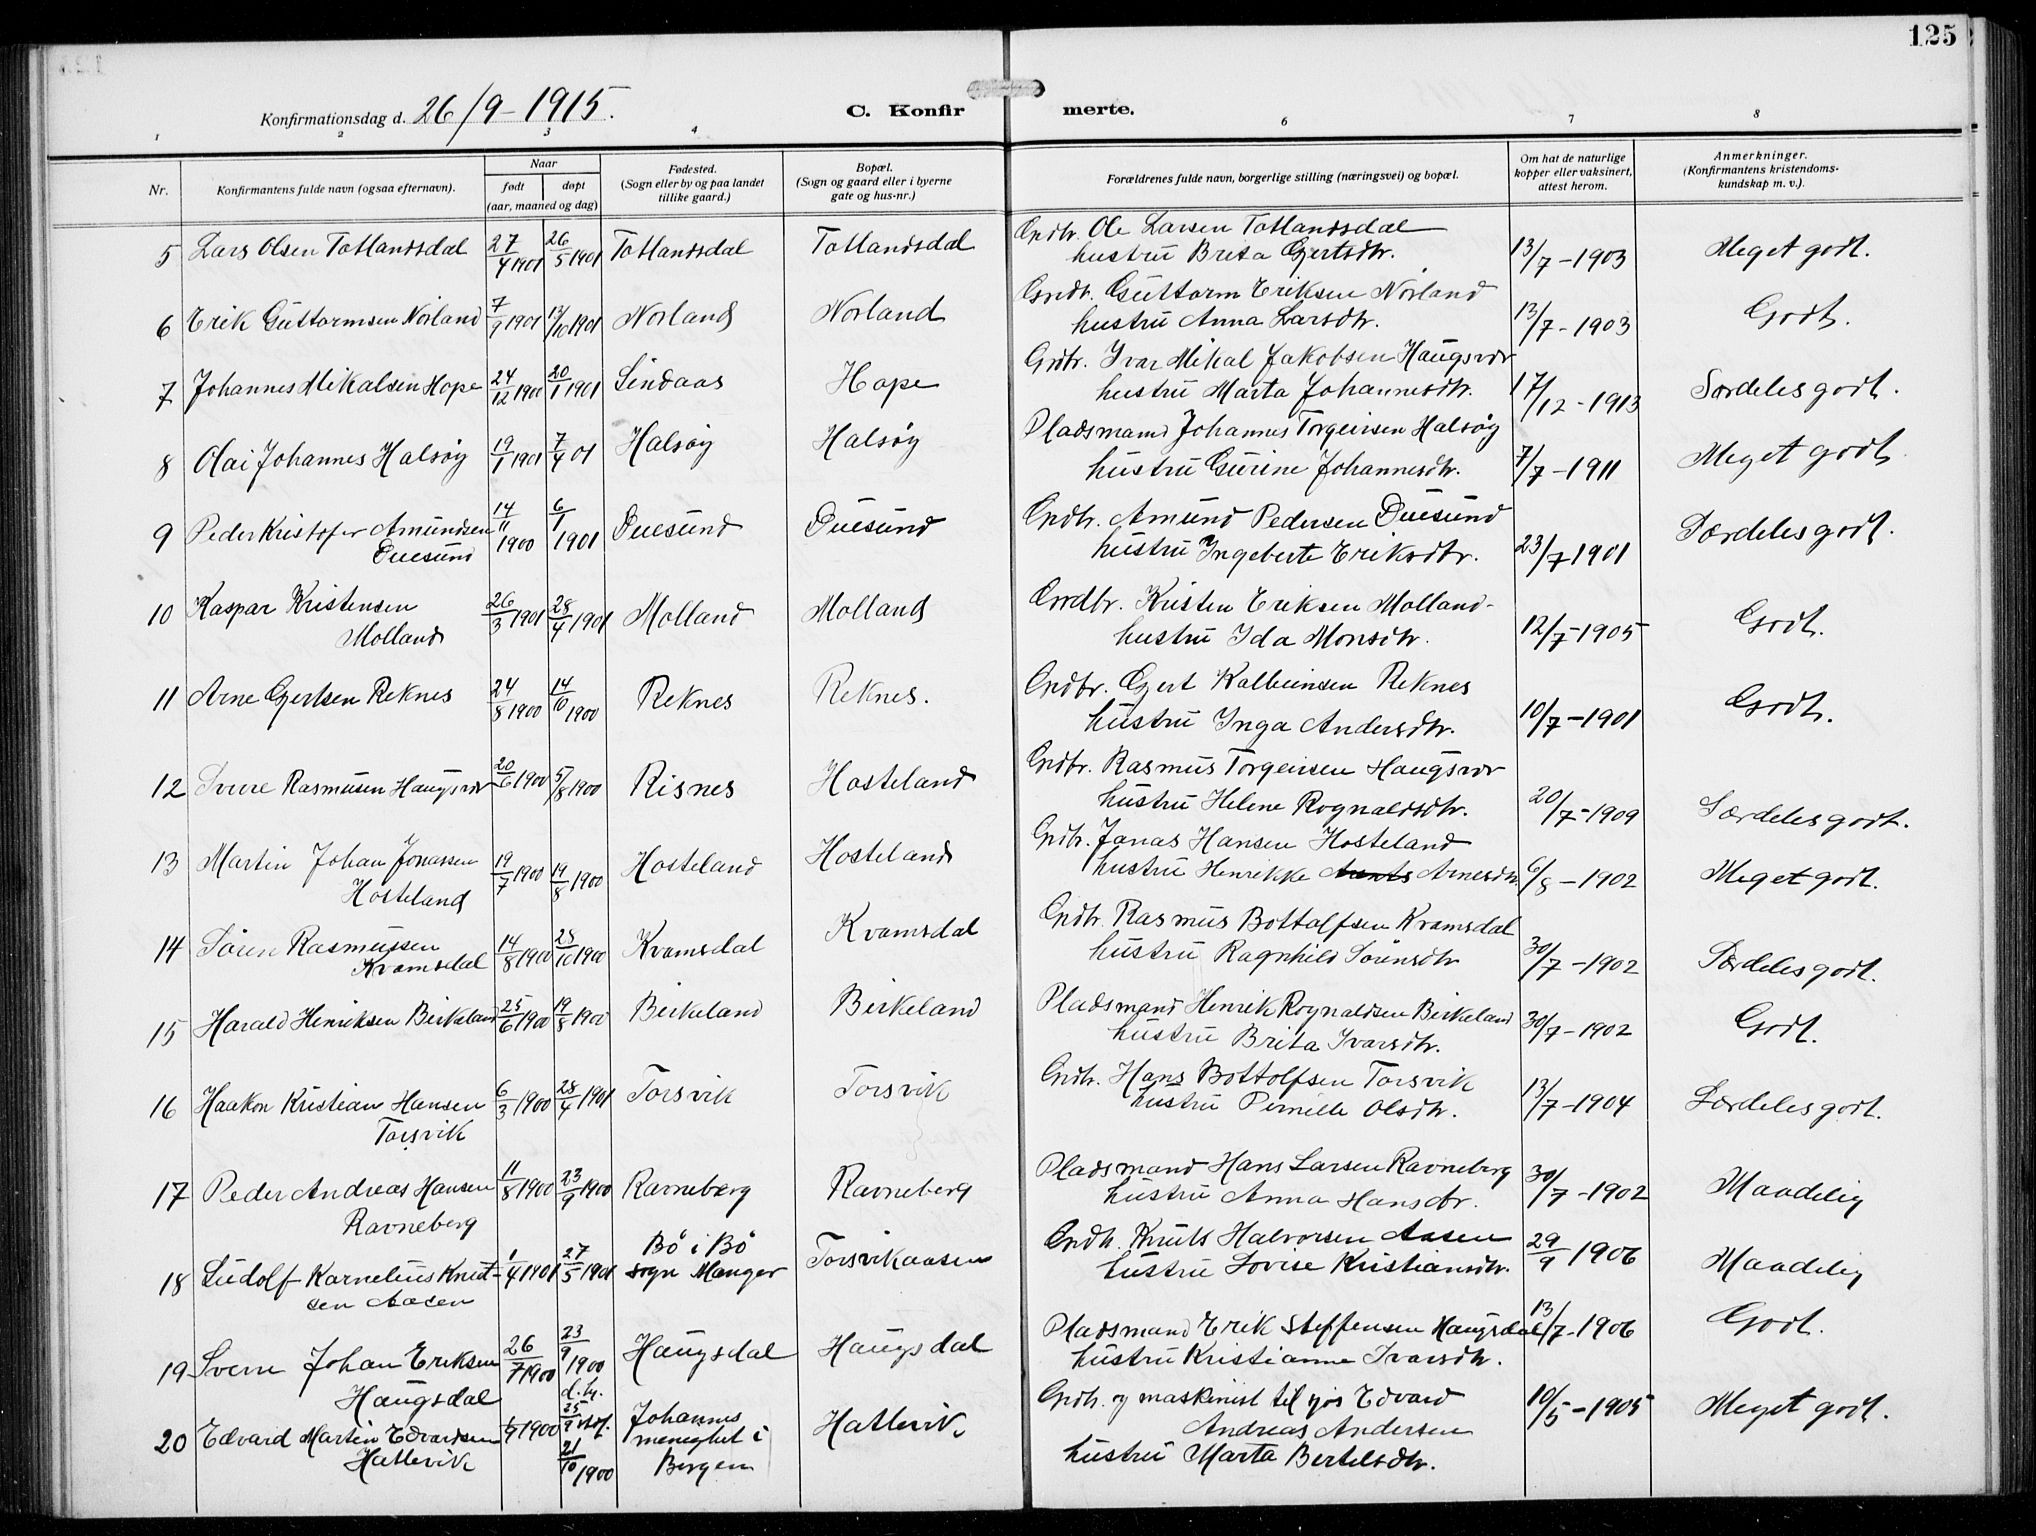 125
Konfirmationsdag d. 26/9-1915.
C. Konfirmerte.
1 2 3 4 6 7 8
Nr.
Konfirmantens fulde navn (ogsaa efternavn).
Naar
født døpt
(aar, maaned og dag)
Fødested.
(Sogn eller by og paa landet
tillike gaard.)
Bopæl.
(Sogn og gaard eller i byerne
gate og hus-nr.)
Forældrenes fulde navn, borgerlige stilling (næringsvei) og bopæl.
Om hat de naturlige
kopper eller vaksinert,
attest herom.
Anmerkninger.
(Konfirmantens kristendoms-
kundskap m. v.).
5 Lars Olsen Totlandsdal 27/4 1901 26/5 1901 Totlandsdal Totlandsdal Grdbr. Ole Larsen Totlandsdal
hustru Brita Gjertsdtr. 13/7-1903 Meget godt.
6 Erik Guttormsen Norland 7/9 1901 13/10 1901 Norland Norland Grdbr. Guttorm Eriksen Norland
hustru Anna Larsdtr. 13/7-1903 Godt.
7 Johannes Mikalsen Hope 24/12 1900 20/1 1901 Lindaas Hope Grdbr. Ivar Mikal Jakobsen Haugsvær
hustru Marta Johannesdtr. 17/12-1913 Særdeles godt.
8 Olai Johannes Halsøy 19/1 1901 7/4 01 Halsøy Halsøy Pladsmand Johannes Torgeirsen Halsøy
hustru Gurine Johannesdtr. 7/7-1911 Meget godt
9 Peder Kristofer Amundsen
Duesund 14/11 1900 6/1 1901 Duesund Duesund Grdbr. Amund Pedersen Duesund
hustru Ingeberte Eriksdtr. 23/7 1901 Særdeles godt.
10 Kaspar Kristensen
Molland 26/3 1901 28/4 1901 Molland Molland Grdbr. Kristen Eriksen Molland-
hustru Ida Monsdtr. 12/7-1905 Godt.
11 Arne Gjertsen Reknes 24/8 1900 14/10 1900 Reknes Reknes. Grdbr. Gjert Kolbeinsen Reknes
hustru Inga Andersdtr. 10/7-1901 Godt.
12 Sverre Rasmusen Haugsvær 20/6 1900 5/8 1900 Risnes Hosteland Grdbr. Rasmus Torgeirsen Haugsvær
hustru Helene Rognaldsdtr. 20/7-1909 Særdeles godt.
13 Martin Johan Jonassen
Hosteland 19/7 1900 19/8 1900 Hosteland Hosteland Grdbr. Jonas Hansen Hosteland
hustru Henrikke Arnesdtr. 6/8-1902 Meget godt.
14 Søren Rasmussen
Kvamsdal 14/8 1900 28/10 1900 Kvamsdal Kvamsdal Grdbr. Rasmus Bottolfsen Kvamsdal
hustru Ragnhild Sørensdtr 30/7-1902 Særdeles godt.
15 Harald Henriksen Birkeland 25/6 1900 19/8 1900 Birkeland Birkeland Pladsmand Henrik Rognaldsen Birkeland
hustru Brita Ivarsdtr. 30/7-1902 Godt.
16 Haakon Kristian Hansen
Torsvik 6/3 1900 28/4 1901 Torsvik Torsvik Grdbr. Hans Bottolfsen Torsvik
hustru Pernille Olsdtr. 13/7-1904 Særdeles godt.
17 Peder Andreas Hansen
Ravneberg 11/8 1900 23/9 1900 Ravneberg Ravneberg Pladsmand Hans Larsen Ravneberg
hustru Anna Hansdtr. 30/7-1902 Maadelig
18 Ludolf Kornelius Knut-
sen Aasen 1/4 1901 27/5 1901 Bö i Bö
sogn Manger Torsvikaasen Grdbr. Knut Halvorsen Aasen
hustru Lovise Kristiansdtr. 29/9 1906 Maadelig
19 Sverre Johan Eriksen
Haugsdal 26/7 1900 23/9 1900 Haugsdal Haugsdal Pladsmand Erik Steffensen Haugsdal
hustru Kristianne Ivarsdtr. 13/7-1906 Godt.
20 Edvard Martin Edvardsen
Hatlevik 1/9 1900 25/9 21/10 1900 Johannes
menighet i
Bergen Hatlevik Grdbr. og maskinist til sjøs Edvard
Andreas Andersen
hustru Marta Bertelsdtr. 10/5-1905 Meget godt.